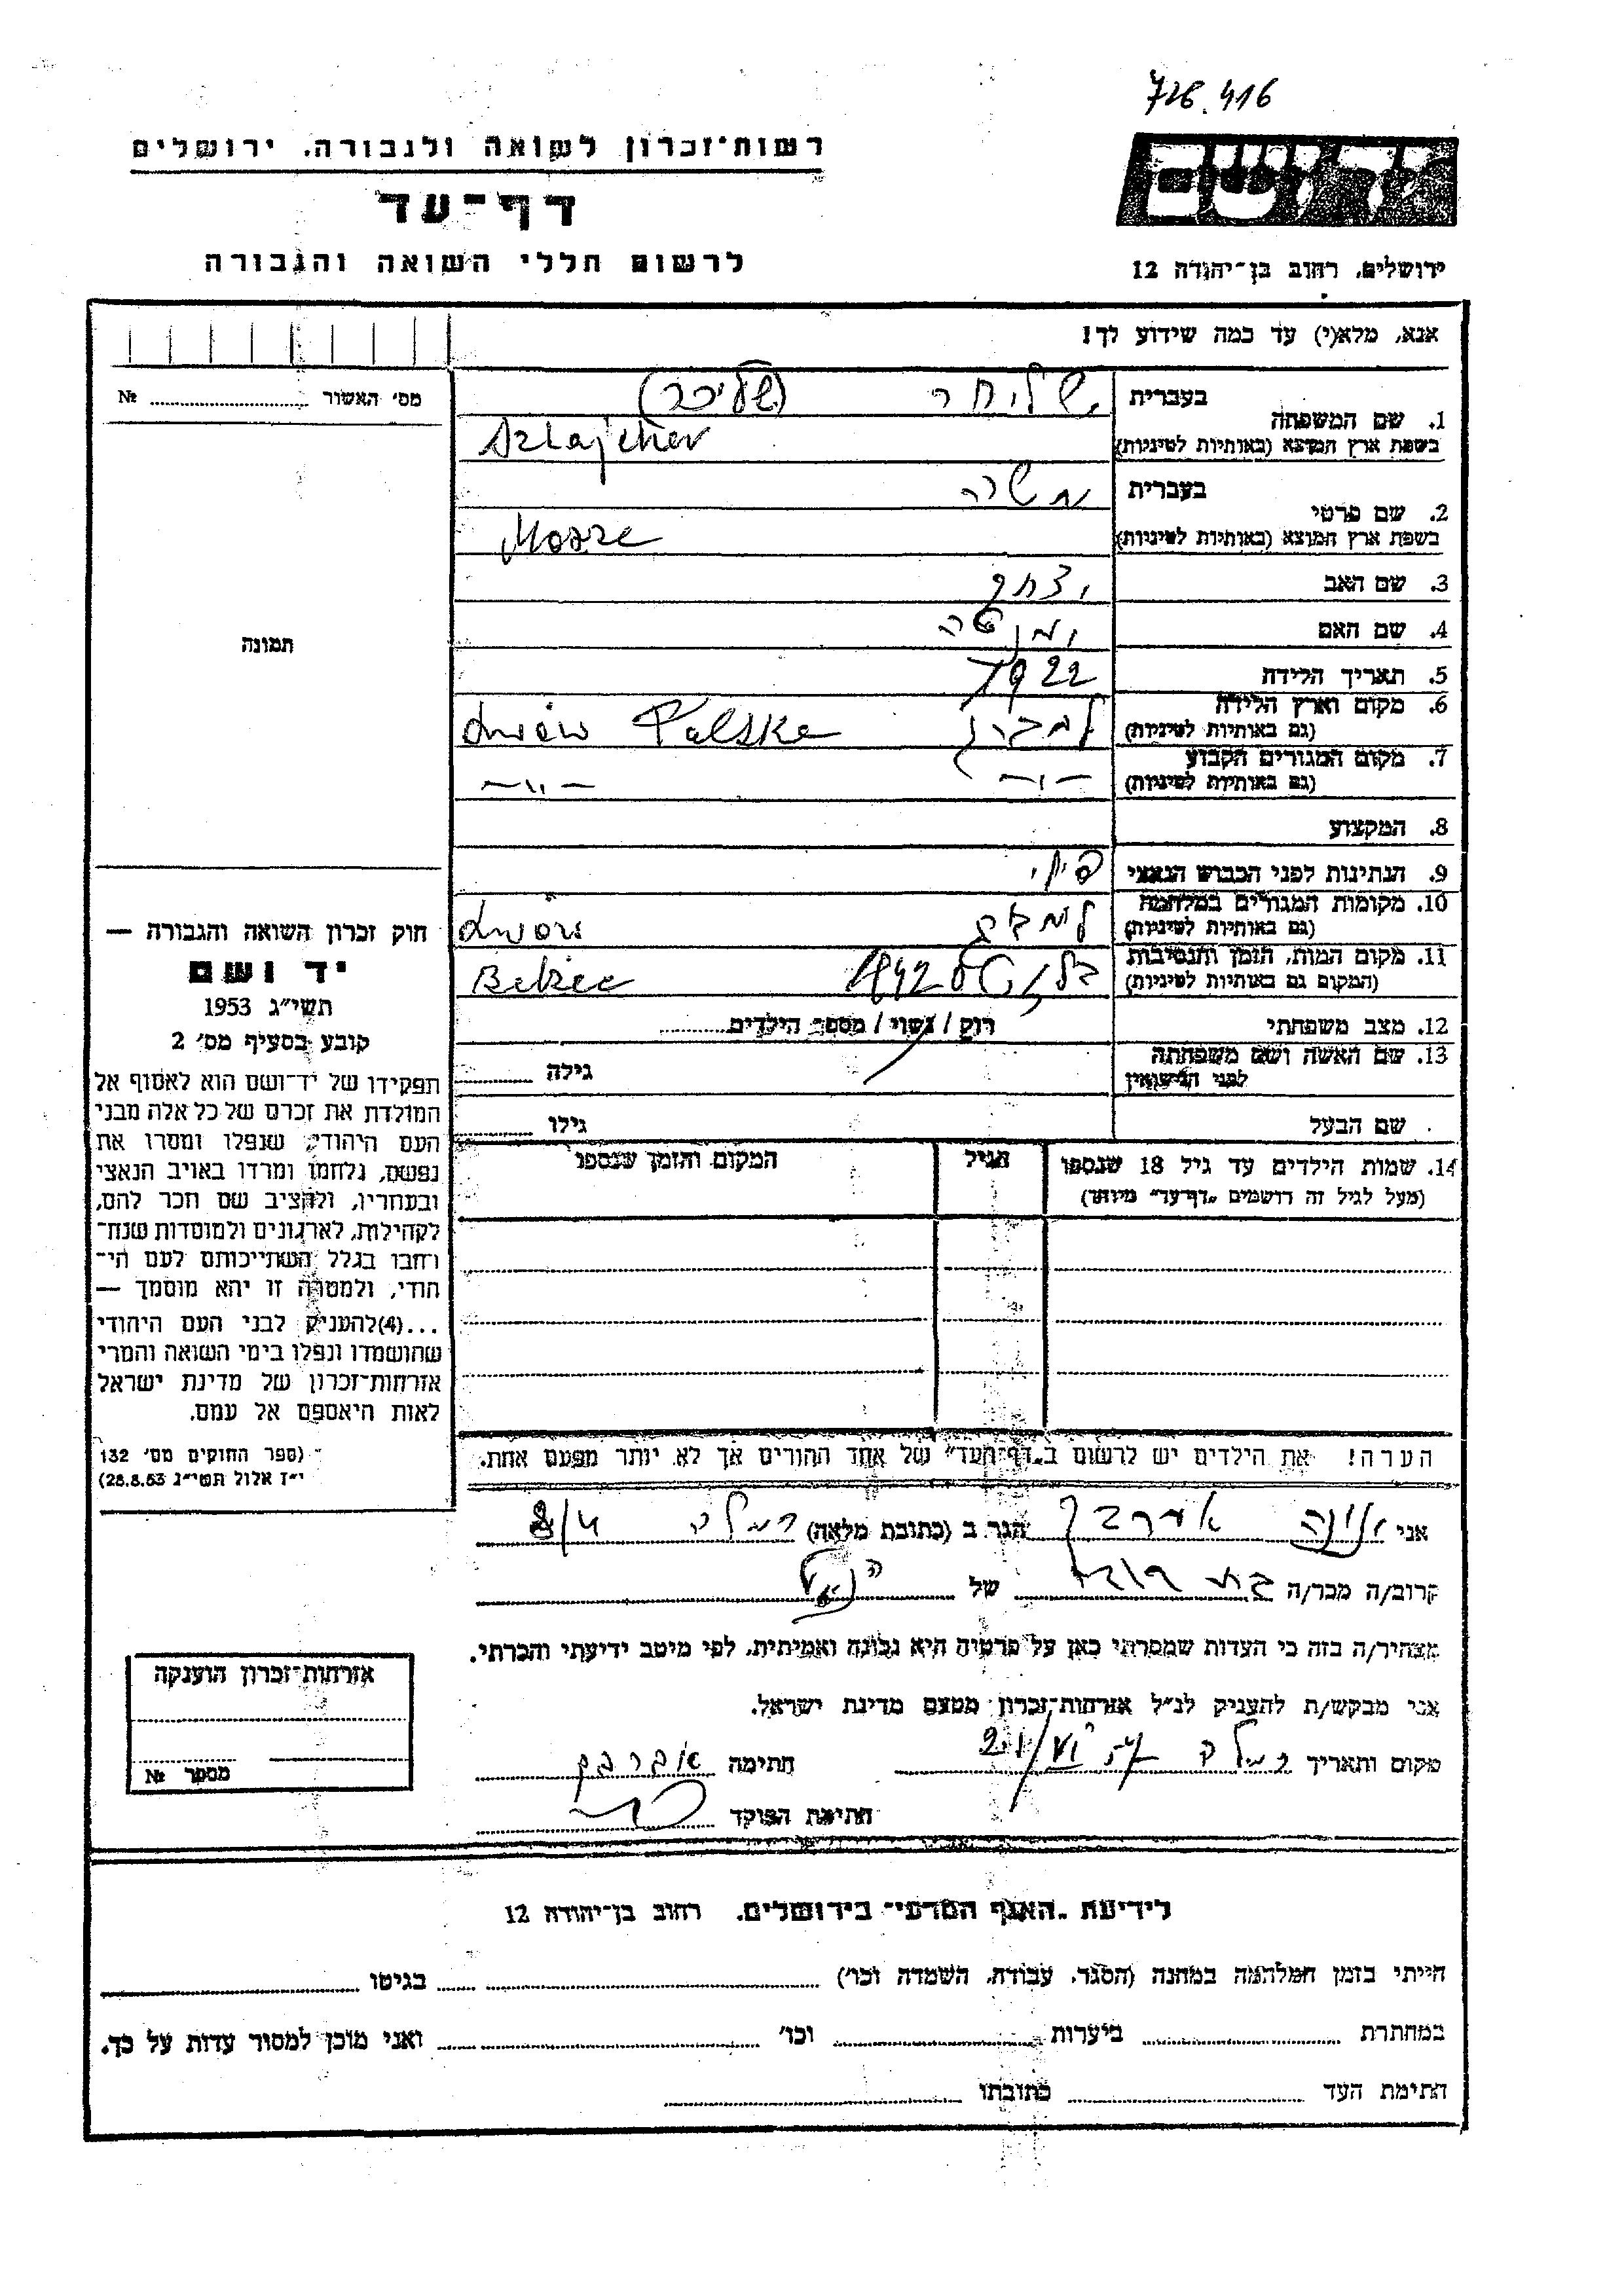 726.416
רשות־זכרון לשואה ולגבורה. ירושלים
דף־עד
לרשום חללי השואה והגבורה
ידושם
ירושלים, רחוב בן־יהודה 12
אנא, מלא(י) עד כמה שידוע לך!
מס׳ האשור № 
תמונה
1. שם המשפחה
בעברית שליחר (שליכר)
בשפת ארץ המוצא (באותיות לטיניות) Szlajcher
2. שם פרטי
בעברית משה
בשפת ארץ המוצא (באותיות לטיניות) Mosze
3. שם האב יצחק
4. שם האם
5. תאריך הלידה 1922
6. מקום וארץ הלידה
(גם באותיות לטיניות) למברג Lwów Polska
7. מקום המגורים הקבוע
(גם באותיות לטיניות) —״— —״—
8. המקצוע
9. הנתינות לפני הכבוש הנאצי
10. מקומות המגורים במלחמה
(גם באותיות לטיניות) למברג Lwów
11. מקום המות, הזמן והנסיבות
(המקום גם באותיות לטיניות) 1942 Bełżec
12. מצב משפחתי רוק / נשוי / מספר הילדים
13. שם האשה ושם משפחתה
לפני הנישואין גילה
שם הבעל גילו
14. שמות הילדים עד גיל 18 שנספו הגיל המקום והזמן שנספו
(מעל לגיל זה רושמים „דף־עד״ מיוחד)
הערה! את הילדים יש לרשום ב„דף־העד״ של אחד ההורים אך לא יותר מפעם אחת.
חוק זכרון השואה והגבורה —
יד ושם
תשי״ג 1953
קובע בסעיף מס׳ 2
תפקידו של יד־ושם הוא לאסוף אל
המולדת את זכרם של כל אלה מבני
העם היהודי, שנפלו ומסרו את
נפשם, נלחמו ומרדו באויב הנאצי
ובעוזריו, ולהציב שם וזכר להם,
לקהילות, לארגונים ולמוסדות שנח־
רחבו בגלל השתייכותם לעם הי־
הודי, ולמטרה זו יהא מוסמך —
...(4)להעניק לבני העם היהודי
שהושמדו ונפלו בימי השואה והמרי
אזרחות־זכרון של מדינת ישראל
לאות היאספם אל עמם.
(ספר החוקים מס׳ 132
י״ז אלול תשי״ג 28.8.53)
אני הגר ב (כתובת מלאה) רמלה
קרוב/ה מכר/ה בת דודו של הנ״ל
מצהיר/ה בזה כי העדות שמסרתי כאן על פרטיה היא נכונה ואמיתית, לפי מיטב ידיעתי והכרתי.
אני מבקש/ת להעניק לנ״ל אזרחות־זכרון מטעם מדינת ישראל.
מקום ותאריך רמלה 21/VI חתימה
חתימת הפוקד
אזרחות־זכרון הוענקה
מספר №
לידיעת „האגף המדעי״ בירושלים, רחוב בן־יהודה 12
הייתי בזמן המלחמה במחנה (הסגר, עבודה, השמדה וכו׳) בגיטו
במחתרת ביערות וכו׳ ואני מוכן למסור עדות על כך.
חתימת העד כתובתו